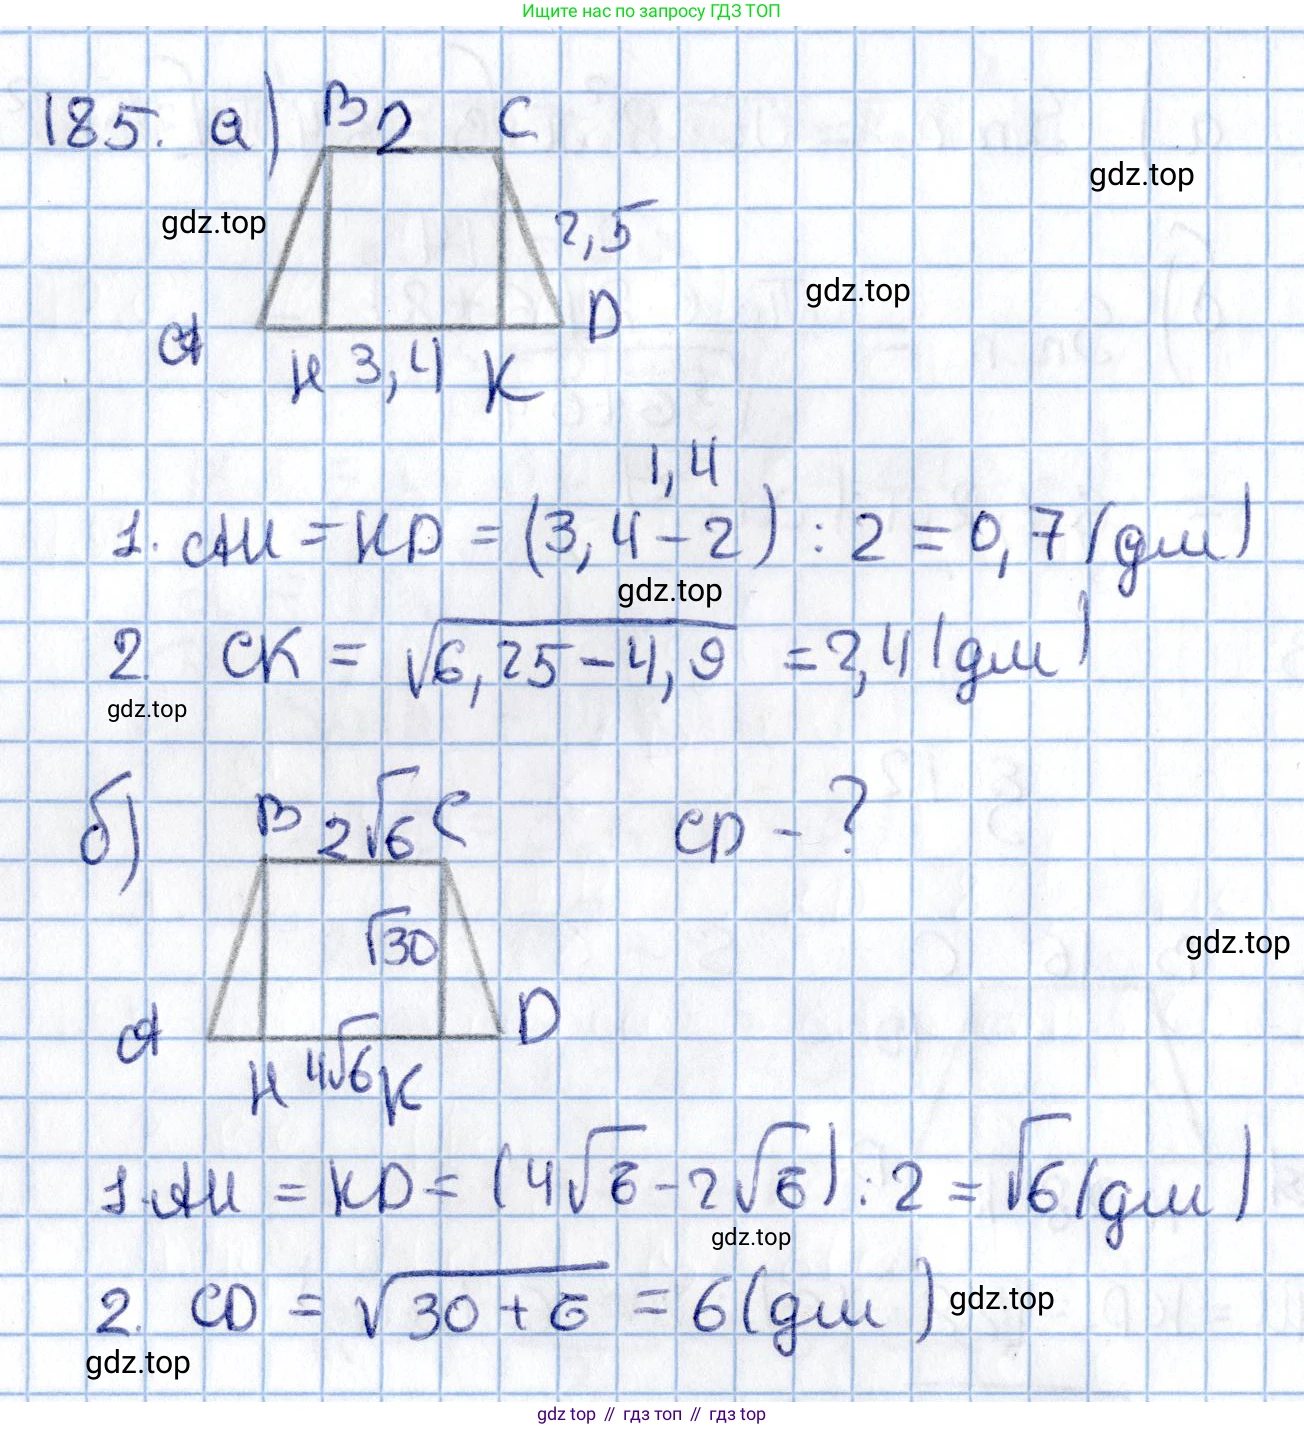 Ищите нас по запросу ГДЗ ТОП
185. а) B 2 C
gdz.top
gdz.top
2,5
gdz.top
A D
H 3,4 K
1,4
1. AH = KD = (3,4 - 2) : 2 = 0,7 (дм)
gdz.top
2. CK = √6,25 - 4,9 = 2,4 (дм)
gdz.top
б) B 2√6 C CD - ?
√30
gdz.top
A D
H 4√6 K
1. AH = KD = (4√6 - 2√6) : 2 = √6 (дм)
gdz.top
2. CD = √30 + 6 = 6 (дм)
gdz.top
gdz.top
gdz top // гдз топ // гдз top